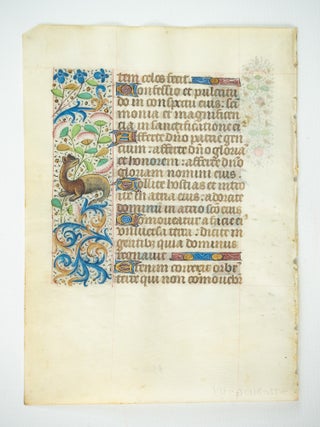 tem celos fecit.
Confessio et pulcritu
do in conspectu eius: sci
monia et magnificen
tia in sanctificatione ei
Afferte dño patrie gen
tium: afferte dño gloria
et honorem: afferte dño
gloriam nomini eius
Tollite hostias et introi
te in atria eius: adorate
dominum in atrio sco eius
Comoueatur a facie ei
uniuersa terra: dicite in
gentibz quia dominus
regnauit
Etenim correxit orbe
terre qui non comoueb